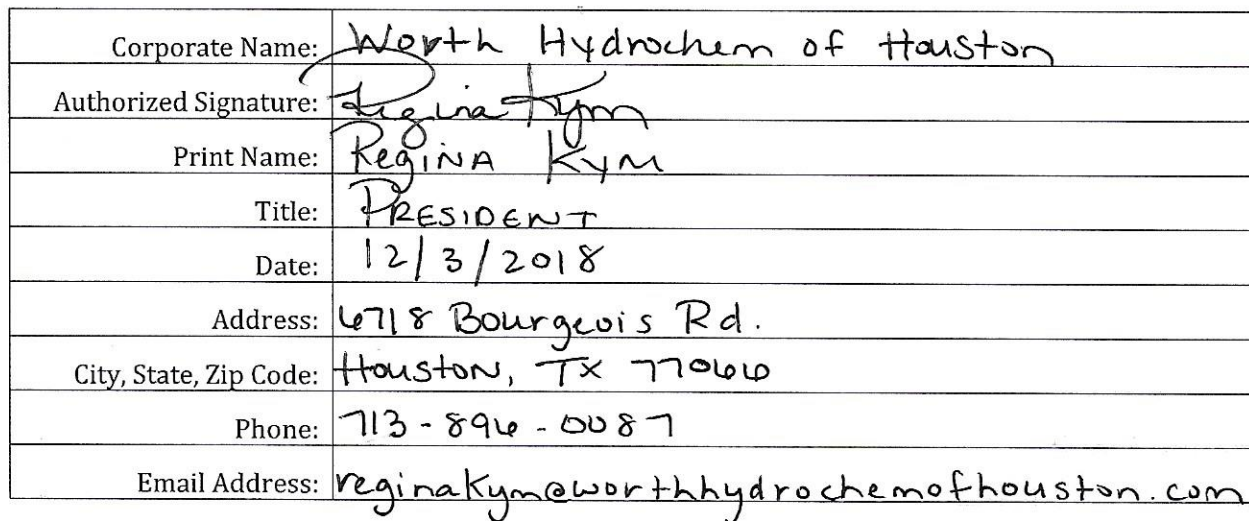 Corporate Name: Worth Hydrochem of Houston
Authorized Signature: Regina Kym
Print Name: Regina Kym
Title: PRESIDENT
Date: 12/3/2018
Address: 6718 Bourgeois Rd.
City, State, Zip Code: Houston, TX 77066
Phone: 713-896-0087
Email Address: reginakym@worthhydrochemofhouston.com